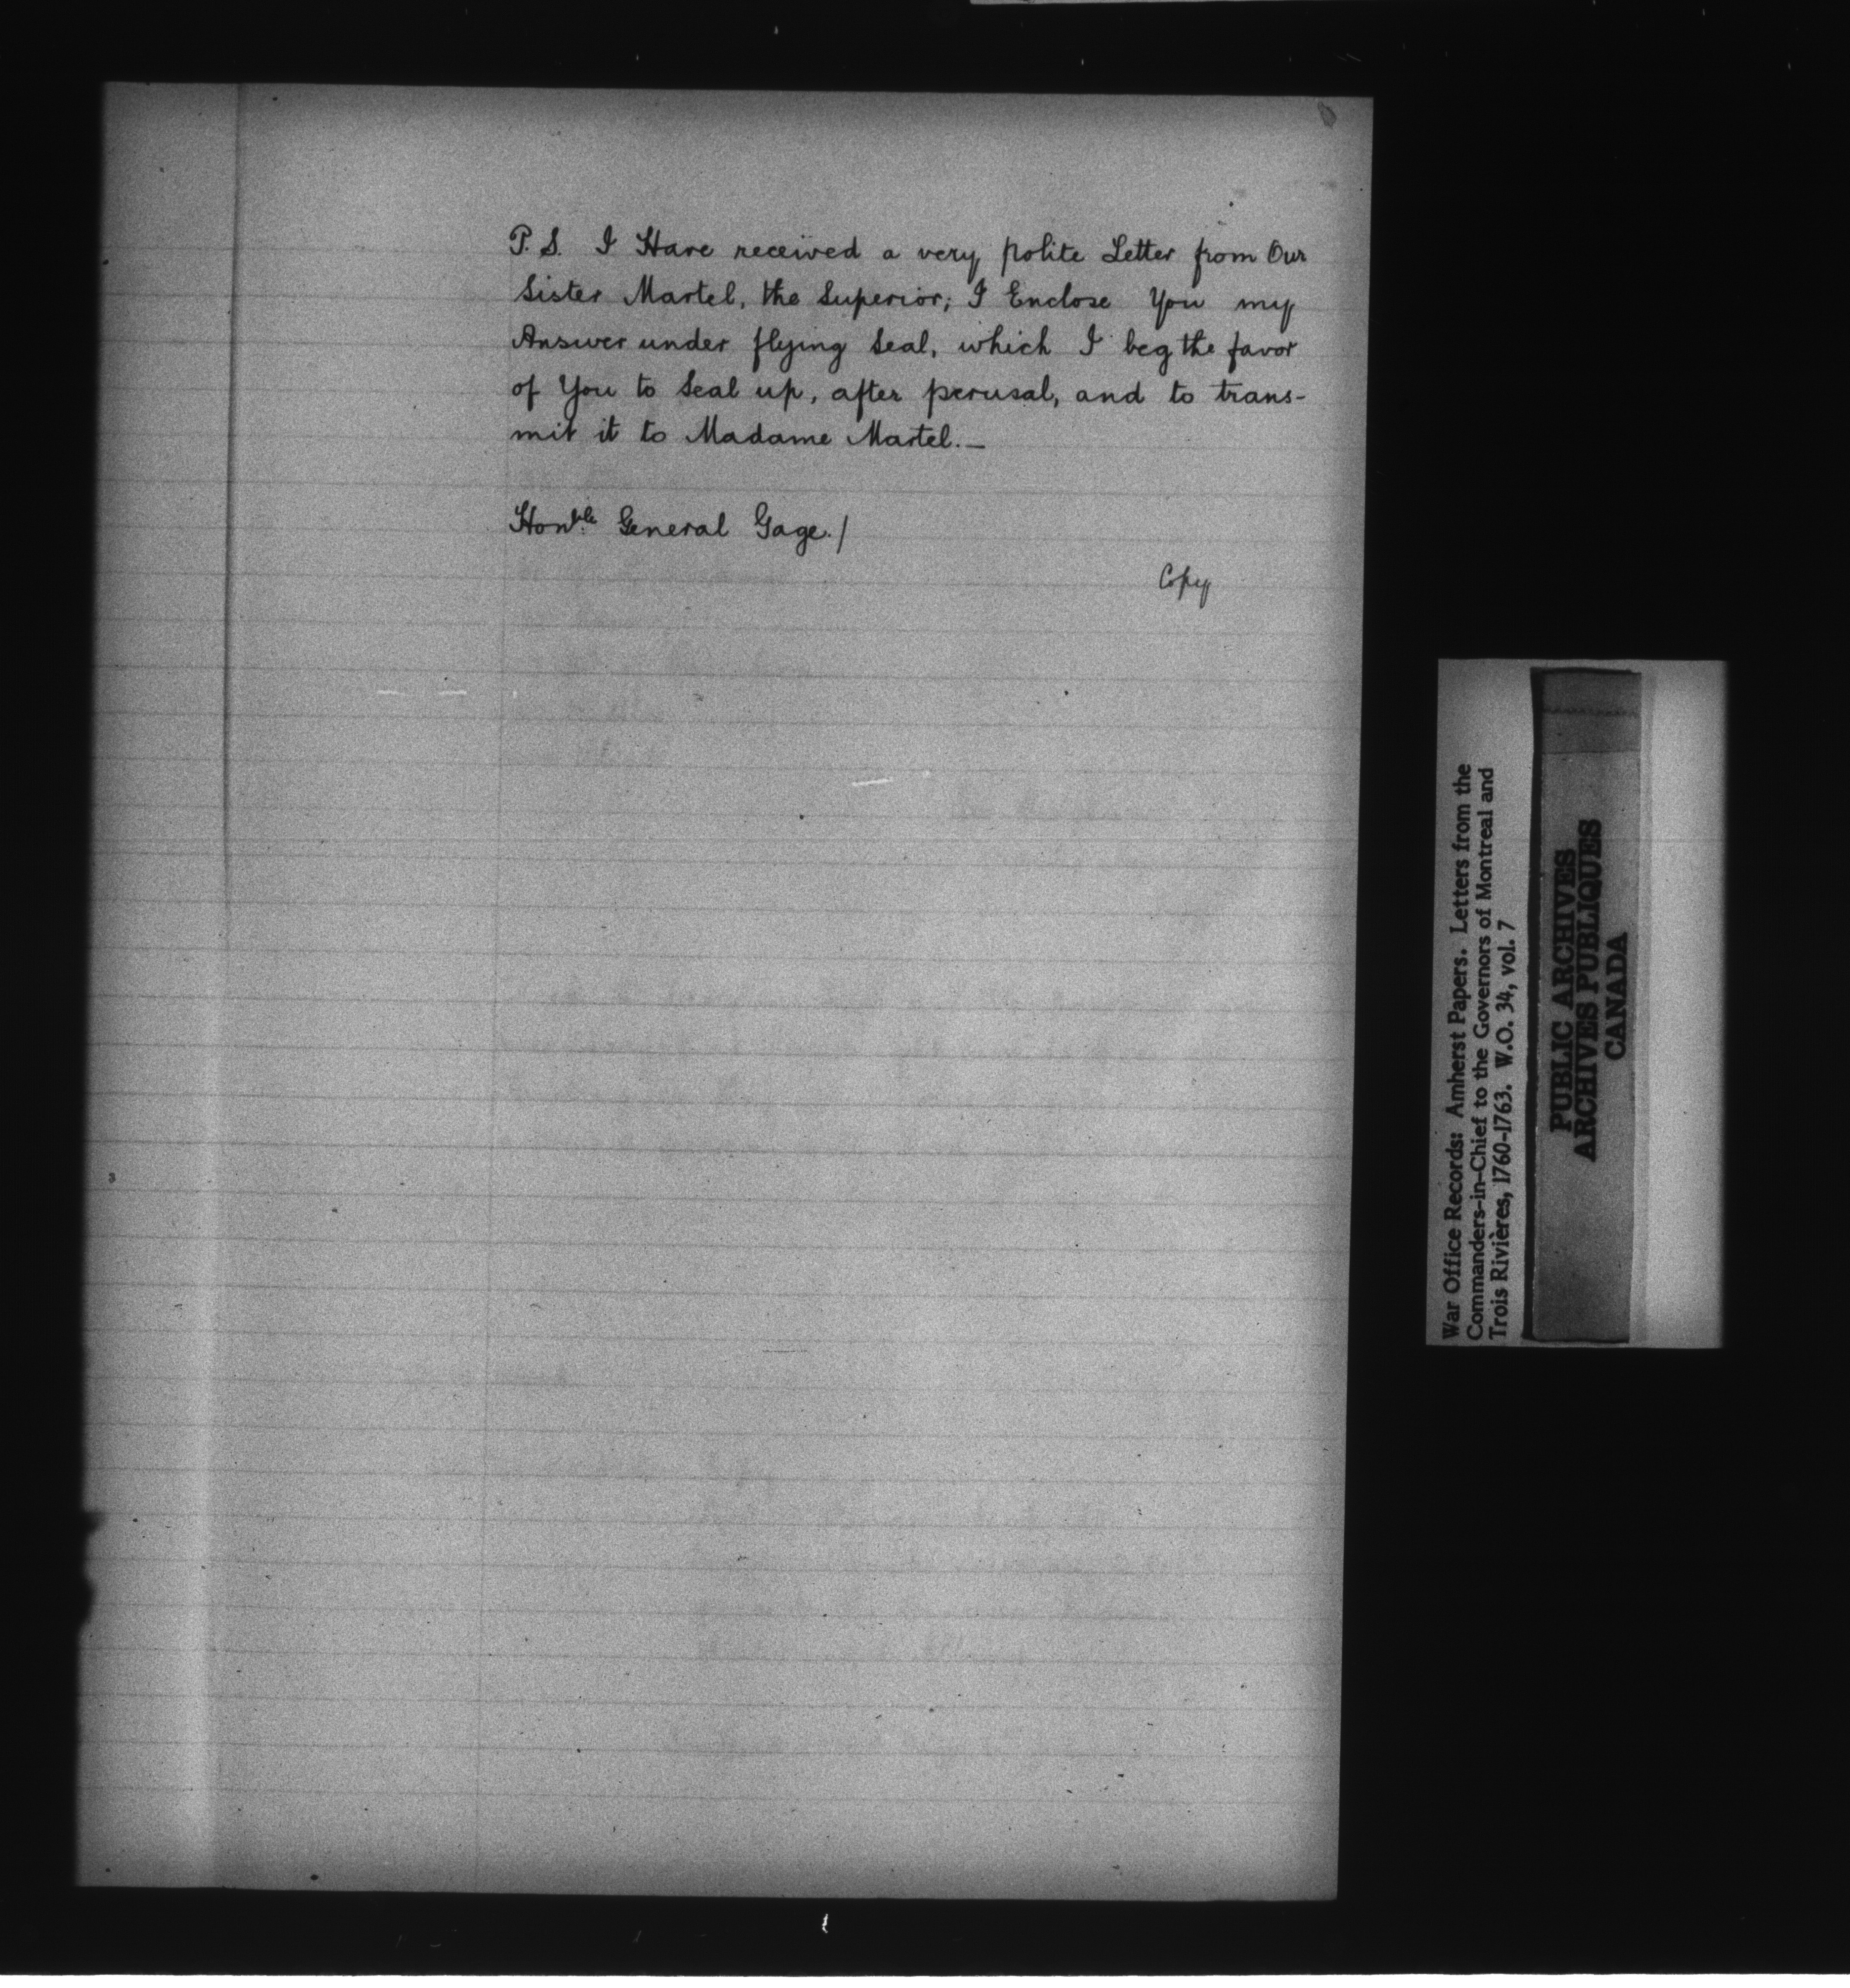 P.S. I Have received a very polite Letter from Our
Sister Martel, the Superior; I Enclose You my
Answer under flying Seal, which I beg the favor
of You to Seal up, after perusal, and to trans-
mit it to Madame Martel.—
Honble General Gage./
Copy
War Office Records: Amherst Papers. Letters from the
Commanders-in-Chief to the Governors of Montreal and
Trois Rivières, 1760-1763. W.O. 34, vol. 7
PUBLIC ARCHIVES
ARCHIVES PUBLIQUES
CANADA